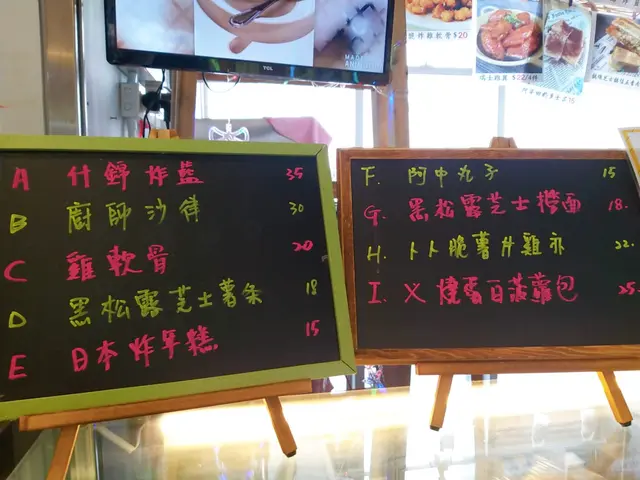 TCL
炸雞軟骨$20
瑞士雞翼 $22/4件
A 什錦炸藍 35
B 廚師沙律 30
C 雞軟骨 20
D 黑松露芝士薯条 18
E 日本炸年糕 15
F. 阿中丸子 15
G. 黑松露芝士撈面 18.
H. 卜卜脆薯片雞亦 22.
I. 乂燒蛋百菠蘿包 25.